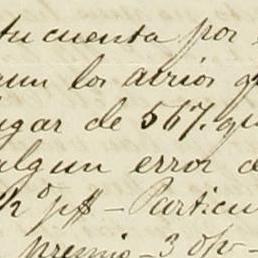 tu cuenta por
gun los avisos q
ugar de 567. qu
algun error d
1/2 % p$ — Particu
premio — 3 o/o —